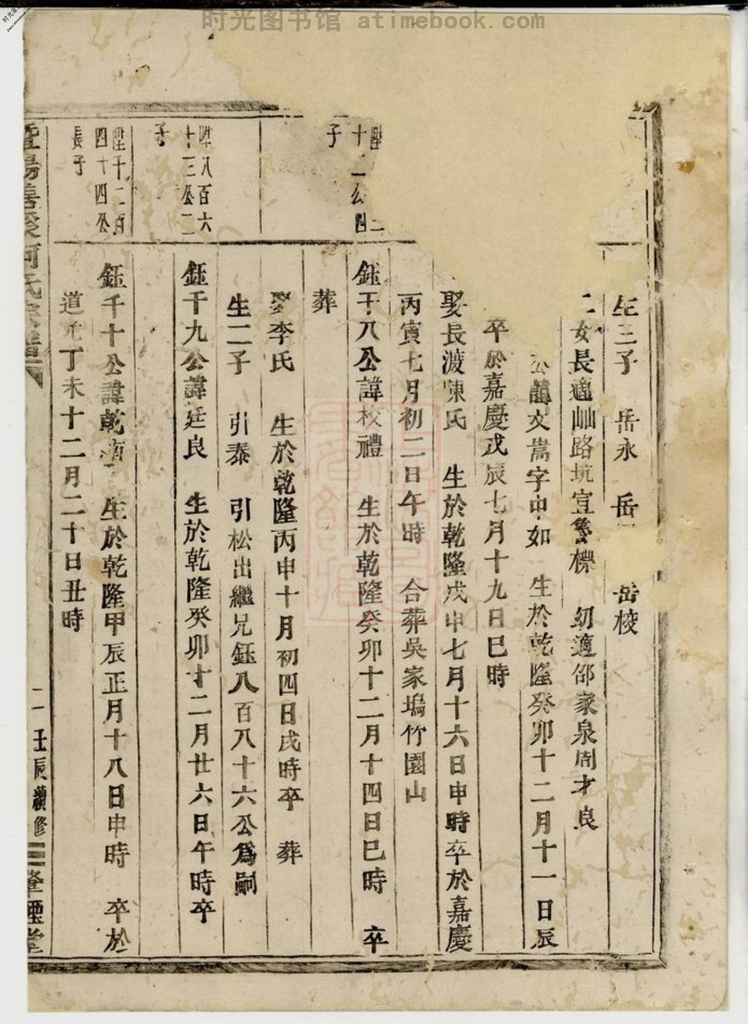 时光图书馆 atimebook.com
生三子 岳永 岳 岳校
二女長適 路坑宣 標 幼適邵家泉周才良
公諱文嵩字中如 生於乾隆癸卯十二月十一日辰
卒於嘉慶戊辰七月十九日巳時
娶長渡陳氏 生於乾隆戊申七月十六日申時卒於嘉慶
丙寅七月初二日午時 合葬吳家塢竹園山
十二公四
子
鈺千八公諱校禮 生於乾隆癸卯十二月十四日巳時 卒
葬
娶李氏 生於乾隆丙申十月初四日戌時卒 葬
生二子 引泰 引松出繼兄鈺八百八十六公爲嗣
陞八百六
十三公二
子
鈺千九公諱廷良 生於乾隆癸卯十二月廿六日午時卒
陞千二百
四十四公
長子
鈺千十公諱乾 生於乾隆甲辰正月十八日申時 卒於
道光丁未十二月二十日丑時
暨陽 何氏宗譜
二 壬辰續修